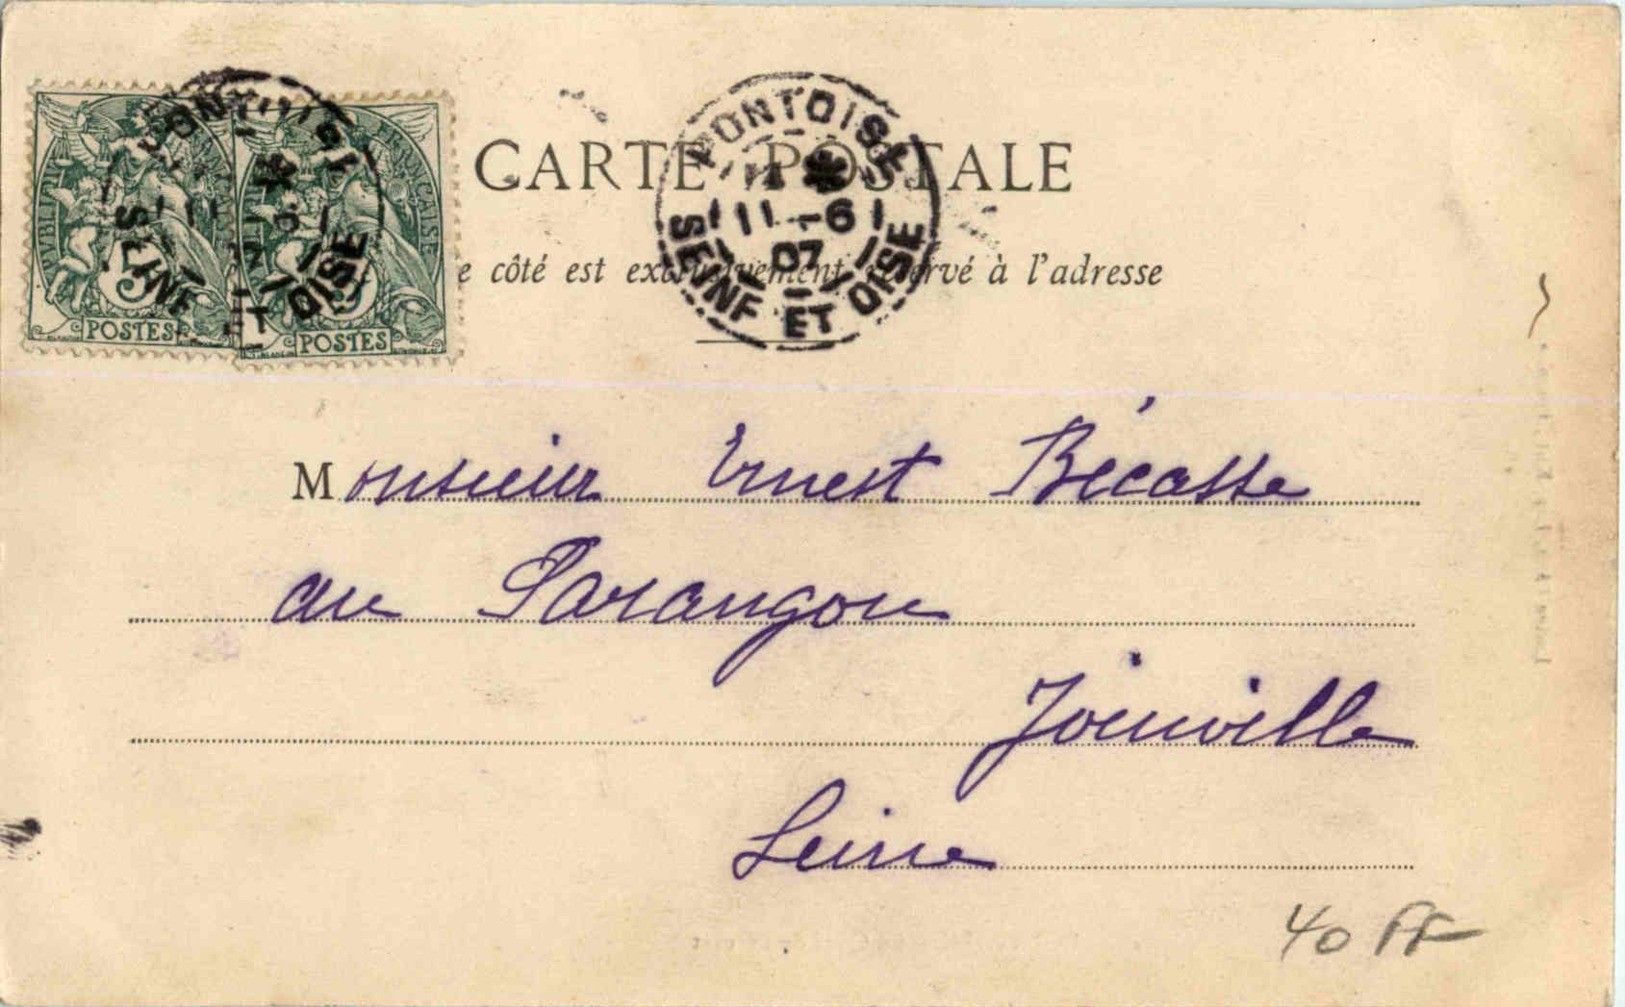 RÉPUBLIQUE FRANÇAISE
5
POSTES
FRANÇAISE
5
POSTES
SEINE ET OISE
CARTE POSTALE
PONTOISE
11 -6
07
SEINE ET OISE
e côté est exclusivement réservé à l'adresse
Monsieur Ernest Bécasse
au Parangon
Joinville
Seine
40 FF